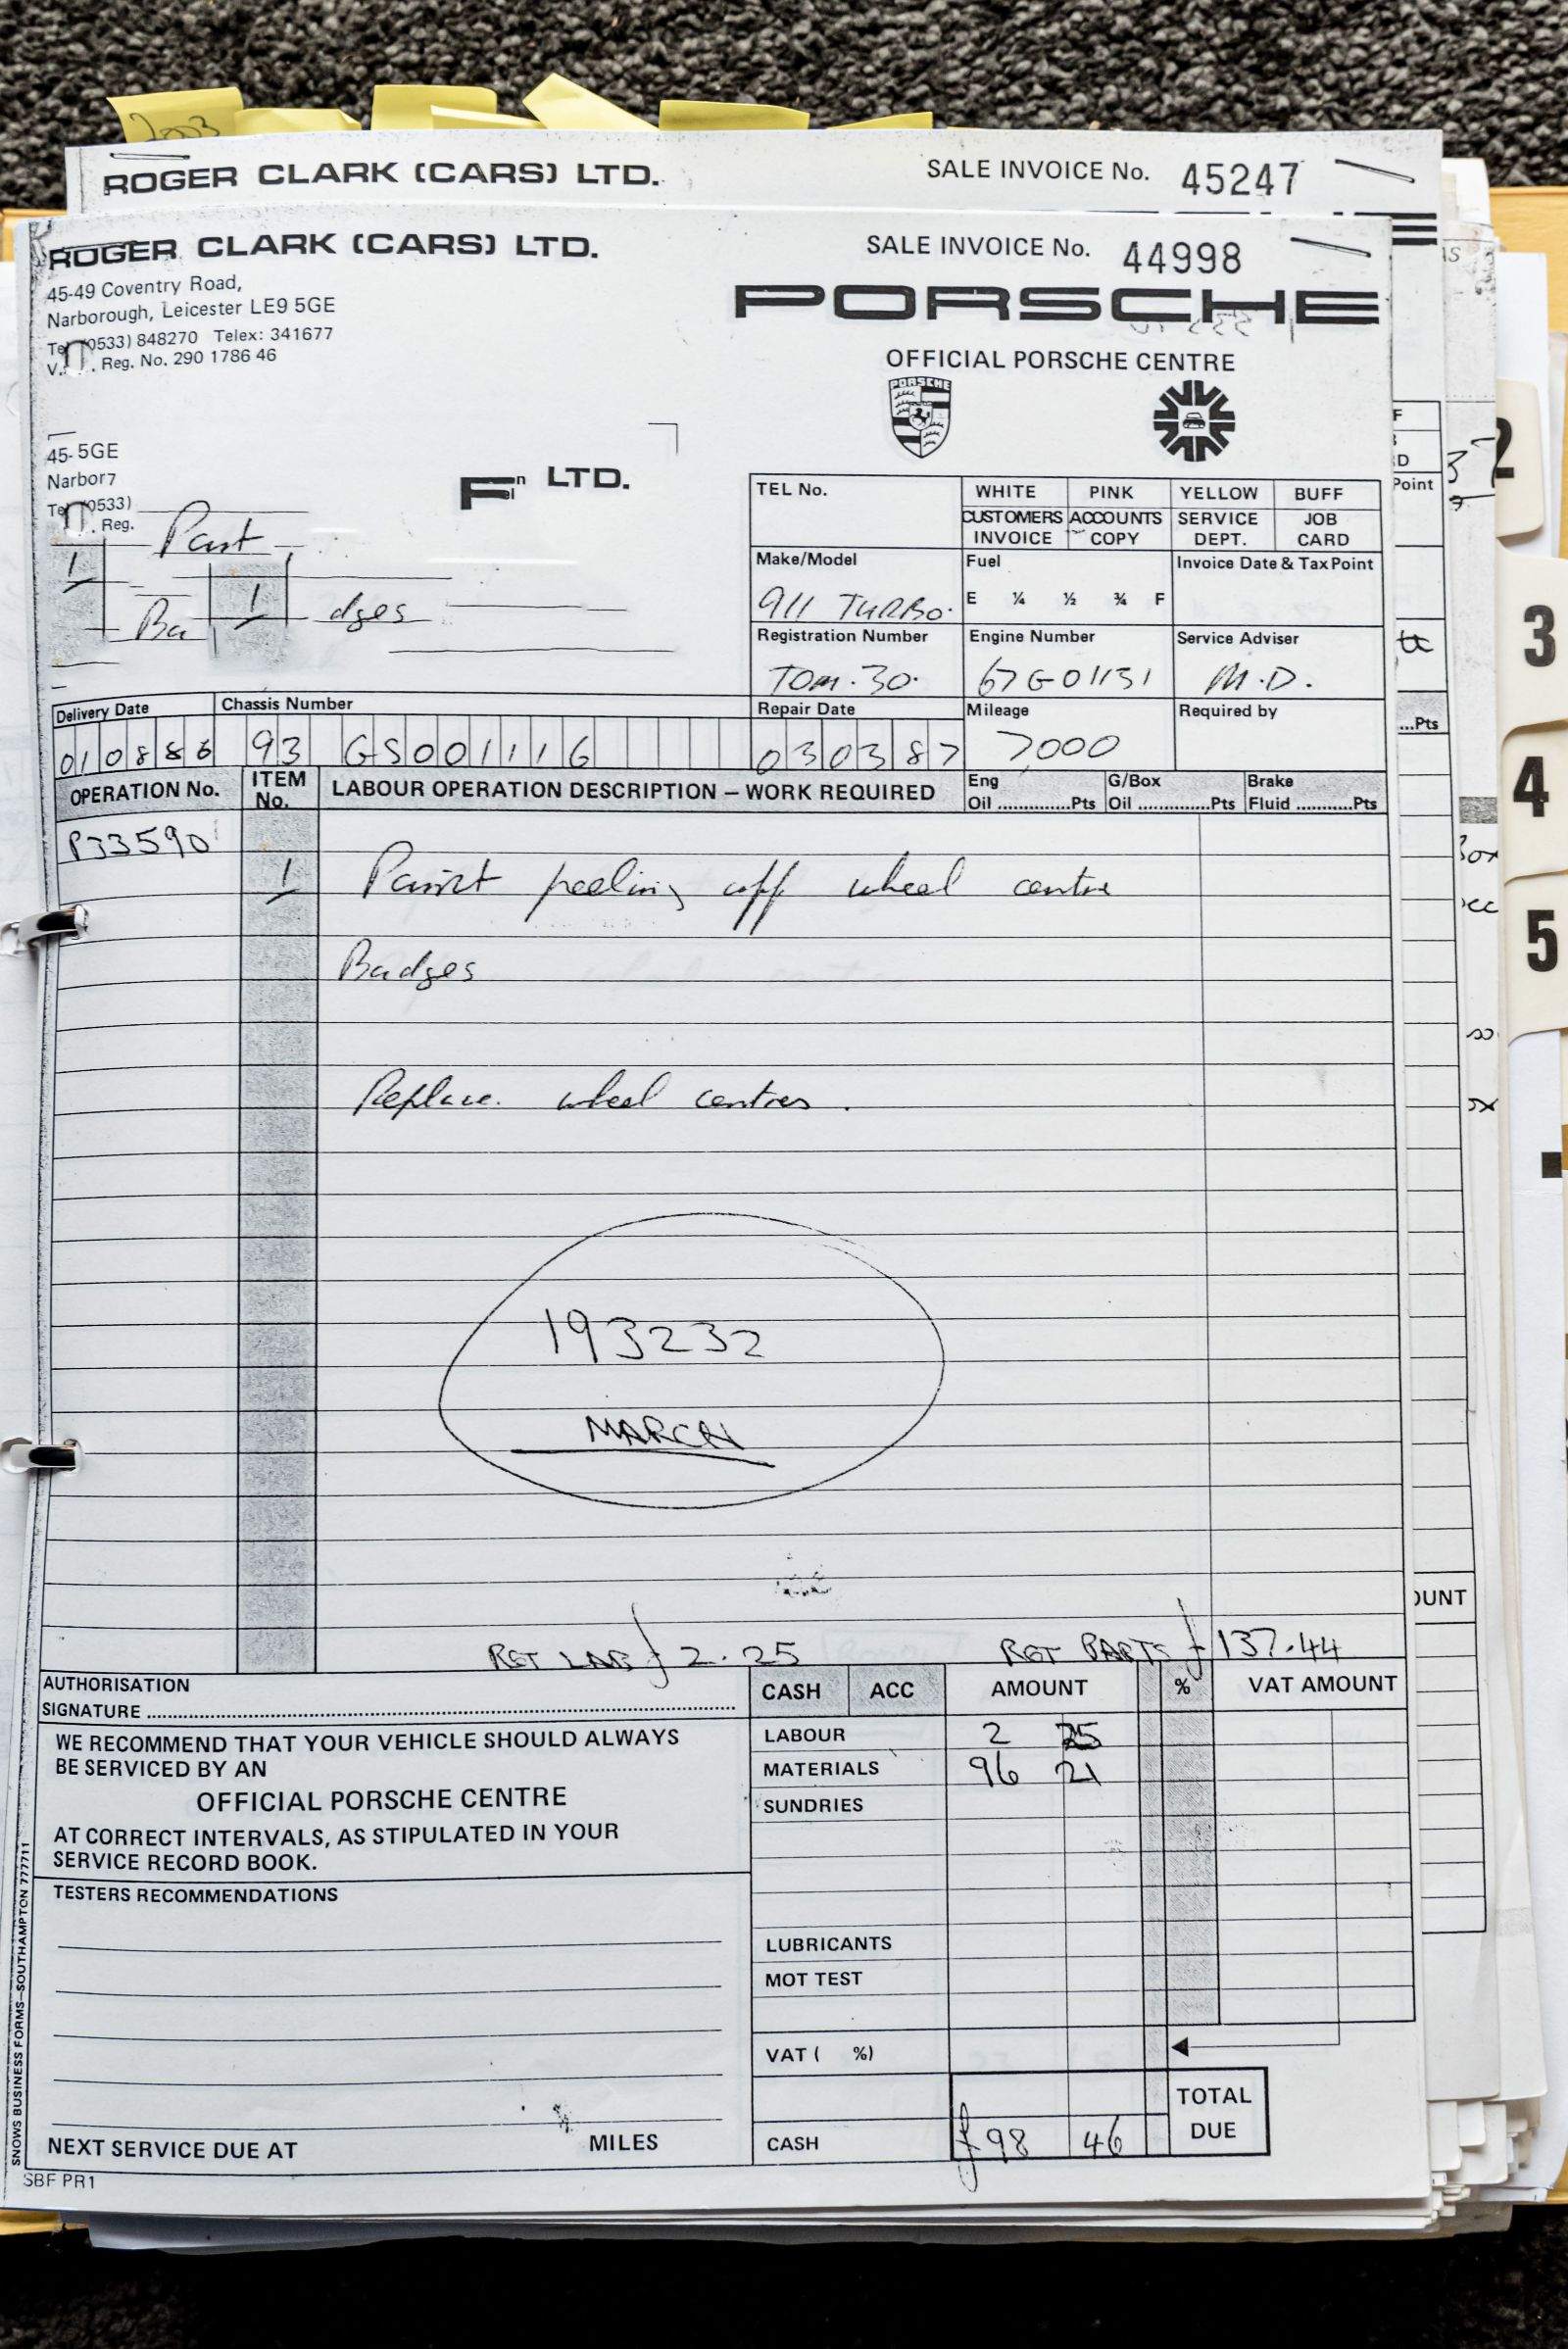 2003
ROGER CLARK (CARS) LTD.
SALE INVOICE No. 45247
ROGER CLARK (CARS) LTD.
SALE INVOICE No. 44998
45-49 Coventry Road,
Narborough, Leicester LE9 5GE
(0533) 848270 Telex: 341677
Reg. No. 290 1786 46
PORSCHE
OFFICIAL PORSCHE CENTRE
PORSCHE
45- 5GE
Narbor7
(0533)
Reg.
LTD.
1
1
dges
TEL No.
WHITE PINK YELLOW BUFF
CUSTOMERS INVOICE
ACCOUNTS COPY
SERVICE DEPT.
JOB CARD
Make/Model
911 TURBO.
Fuel
E ¼ ½ ¾ F
Invoice Date & Tax Point
Registration Number
TOM.30.
Engine Number
67G01131
Service Adviser
M.D.
Delivery Date
010886
Chassis Number
93 GS001116
Repair Date
030387
Mileage
7000
Required by
OPERATION No.
ITEM No.
LABOUR OPERATION DESCRIPTION – WORK REQUIRED
Eng Oil .............Pts
G/Box Oil .............Pts
Brake Fluid ...........Pts
P33590
1 Paint peeling off wheel centre
Badges
Replace. wheel centres.
193232
MARCH
RET LAB £ 2.25 RET PARTS £ 137.44
AUTHORISATION
SIGNATURE
CASH ACC AMOUNT % VAT AMOUNT
WE RECOMMEND THAT YOUR VEHICLE SHOULD ALWAYS
BE SERVICED BY AN
OFFICIAL PORSCHE CENTRE
AT CORRECT INTERVALS, AS STIPULATED IN YOUR
SERVICE RECORD BOOK.
LABOUR 2 25
MATERIALS 96 21
SUNDRIES
TESTERS RECOMMENDATIONS
LUBRICANTS
MOT TEST
VAT ( %)
TOTAL DUE
CASH £98 46
NEXT SERVICE DUE AT MILES
SNOWS BUSINESS FORMS–SOUTHAMPTON 777711
SBF PR1
Point
...Pts
2
3
4
5